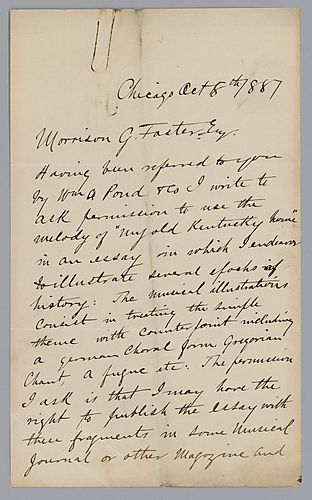 Chicago Oct 8th 1887
Morrison G. Foster Esq.
Having been referred to you
by Wm A Pond & Co I write to
ask permission to use the
melody of "My old Kentucky home"
in an essay in which I endeavor
to illustrate several epochs of
history: The musical illustrations
consist in treating the simple
theme with Counterpoint including
a german Choral form Gregorian
Chant, A fugue etc: The permission
I ask is that I may have the
right to publish the essay with
these fragments in some Musical
Journal or other Magazine and